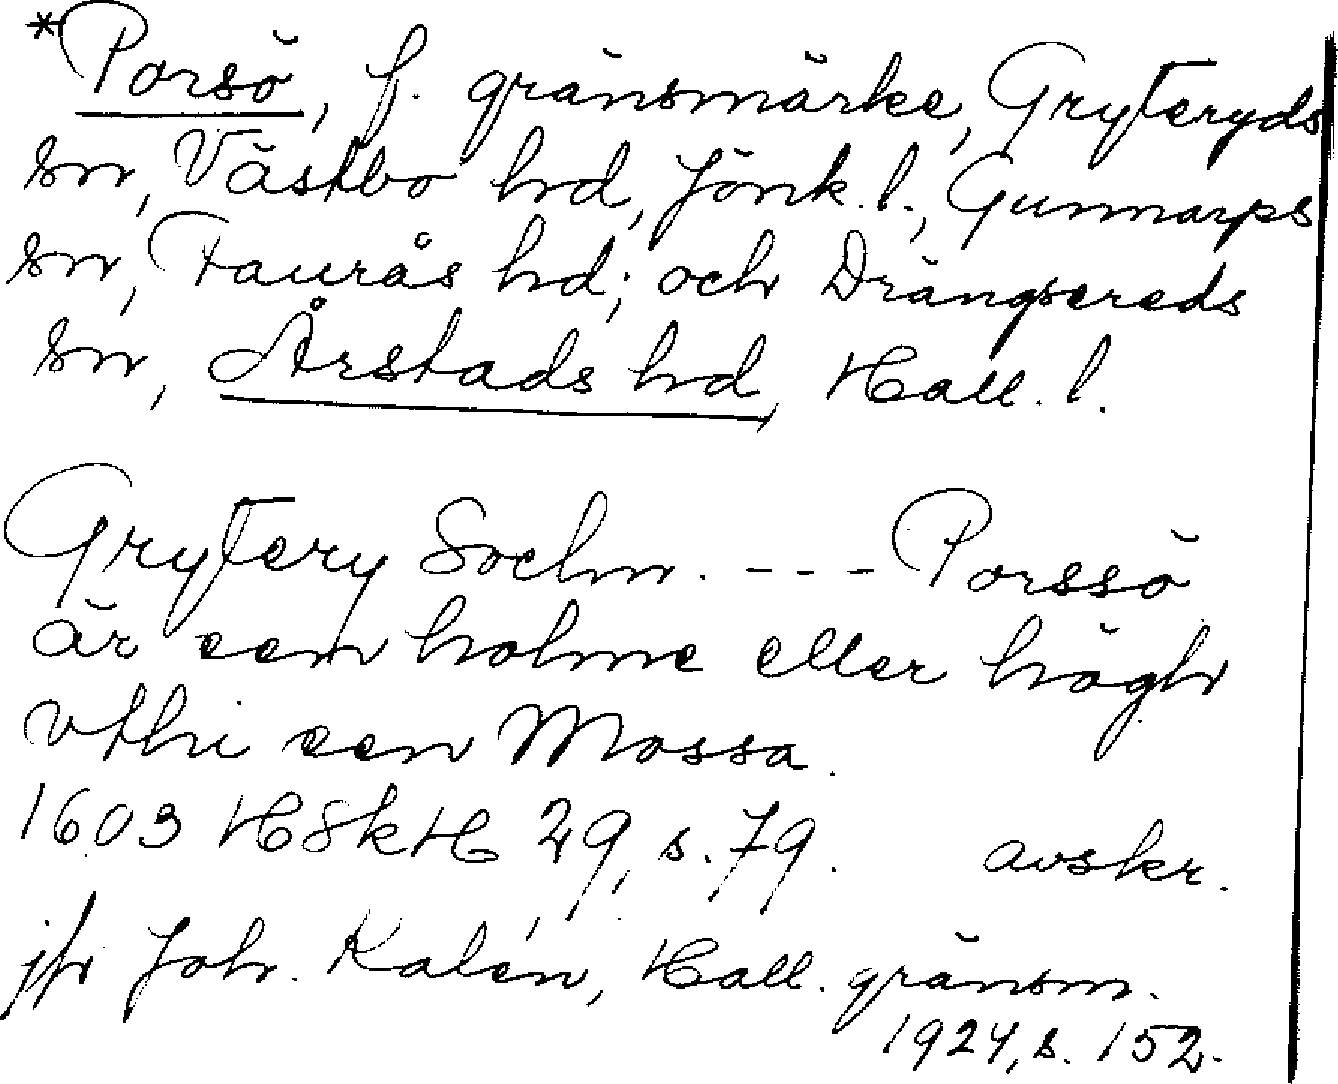 *Porsö, f. gränsmärke, Gryteryds
sn, Västbo hd, Jönk. l., Gunnarps
sn, Faurås hd; och Drängsereds
sn, Årstads hd, Hall. l.
Grytery Sochn. --- Porssö
är een holme eller högh
vthi een Mossa.
1603 HSkH 29, s. 79. avskr.
jfr Joh. Kalén, Hall. gränsm.
1924, s. 152.